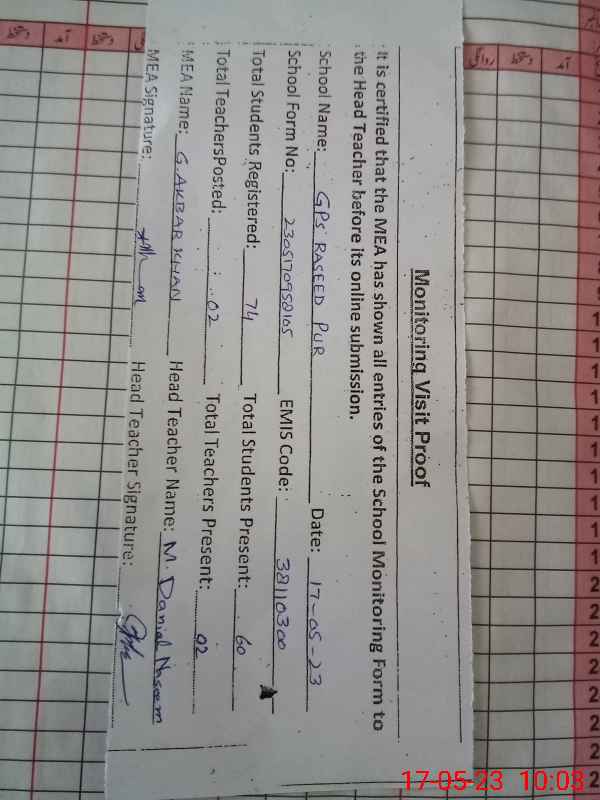 Monitoring Visit Proof
It is certified that the MEA has shown all entries of the School Monitoring Form to
the Head Teacher before its online submission.
School Name: GPS RASEED PUR Date: 17-05-23
School Form No: 230517095810S EMIS Code: 38110300
Total Students Registered: 74 Total Students Present: 60
Total TeachersPosted: 02 Total Teachers Present: 02
MEA Name: G. AKBAR KHAN Head Teacher Name: M. Danial
MEA Signature: Head Teacher Signature:
روانگی دستخط آمد
17-05-23 10:03